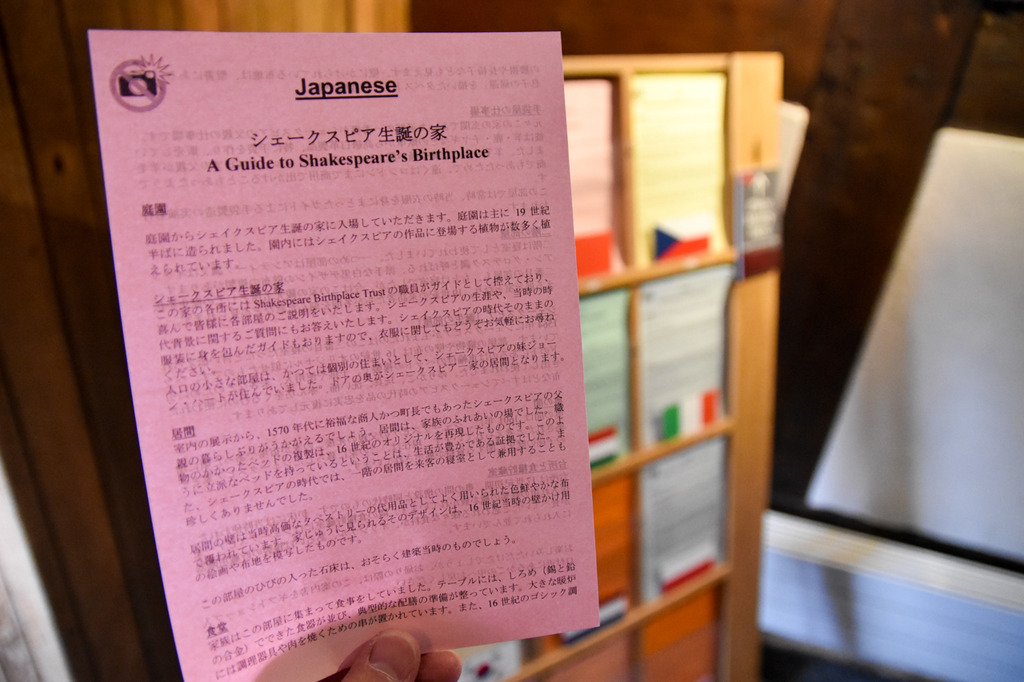 Japanese
シェークスピア生誕の家
A Guide to Shakespeare's Birthplace
庭園
庭園からシェイクスピア生誕の家に入場していただきます。庭園は主に 19 世紀
半ばに造られました。園内にはシェイクスピアの作品に登場する植物が数多く植
えられています。
シェークスピア生誕の家
この家の各所には Shakespeare Birthplace Trust の職員がガイドとして控えており、
喜んで皆様に各部屋のご説明をいたします。シェークスピアの生涯や、当時の時
代背景に関するご質問にもお答えいたします。シェイクスピアの時代そのままの
服装に身を包んだガイドもおりますので、衣服に関してもどうぞお気軽にお尋ね
ください。
入口の小さな部屋は、かつては個別の住まいとして、シェークスピアの妹ジョー
ン・ハートが住んでいました。ドアの奥がシェークスピア一家の居間となります。
居間
室内の展示から、1570 年代に裕福な商人かつ町長でもあったシェークスピアの父
親の暮らしぶりがうかがえるでしょう。居間は、家族のふれあいの場でした。織
物のかかったベッドの複製は、16 世紀のオリジナルを再現したものです。このよ
うに立派なベッドを持っているということは、生活が豊かである証拠でした。ま
た、シェークスピアの時代では、一階の居間を来客の寝室として兼用することも
珍しくありませんでした。
居間の壁は当時高価なタペストリーの代用品としてよく用いられた色鮮やかな布
で覆われています。家じゅうに見られるそのデザインは、16 世紀当時の壁かけ用
の絵画や布地を模写したものです。
この部屋のひびの入った石床は、おそらく建築当時のものでしょう。
食堂
家族はこの部屋に集まって食事をしていました。テーブルには、しろめ（錫と鉛
の合金）でできた食器が並び、典型的な配膳の準備が整っています。大きな暖炉
には調理器具や肉を焼くための串が置かれています。また、16 世紀のゴシック調